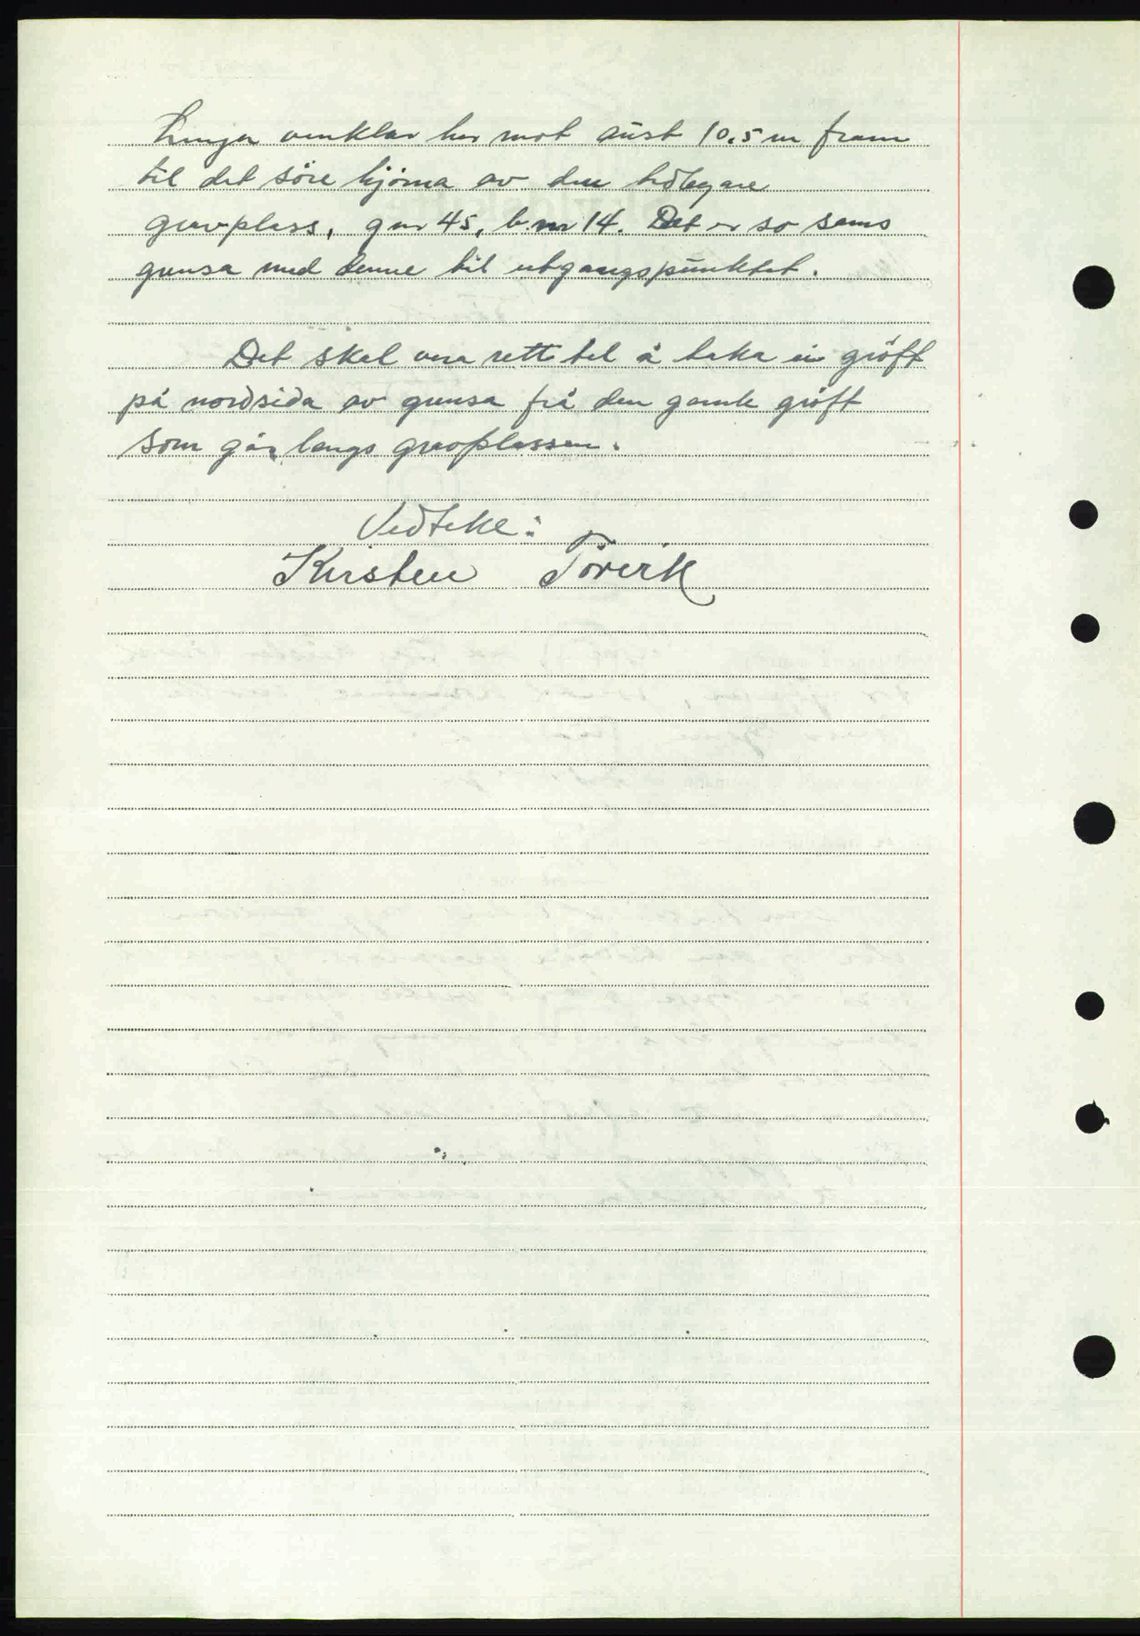 Linja vinklar her mot aust 10.5 m fram
til det söre hjörna av den tidlegare
gravplass, g nr 45, b. nr 14. Det er so sams
grensa med denne til utgangspunktet.
Det skal vera rett til å taka ei gröft
på nordsida av grensa frå den gamle gröft
som går langs gravplassen.
Vedteke:
Kirsten